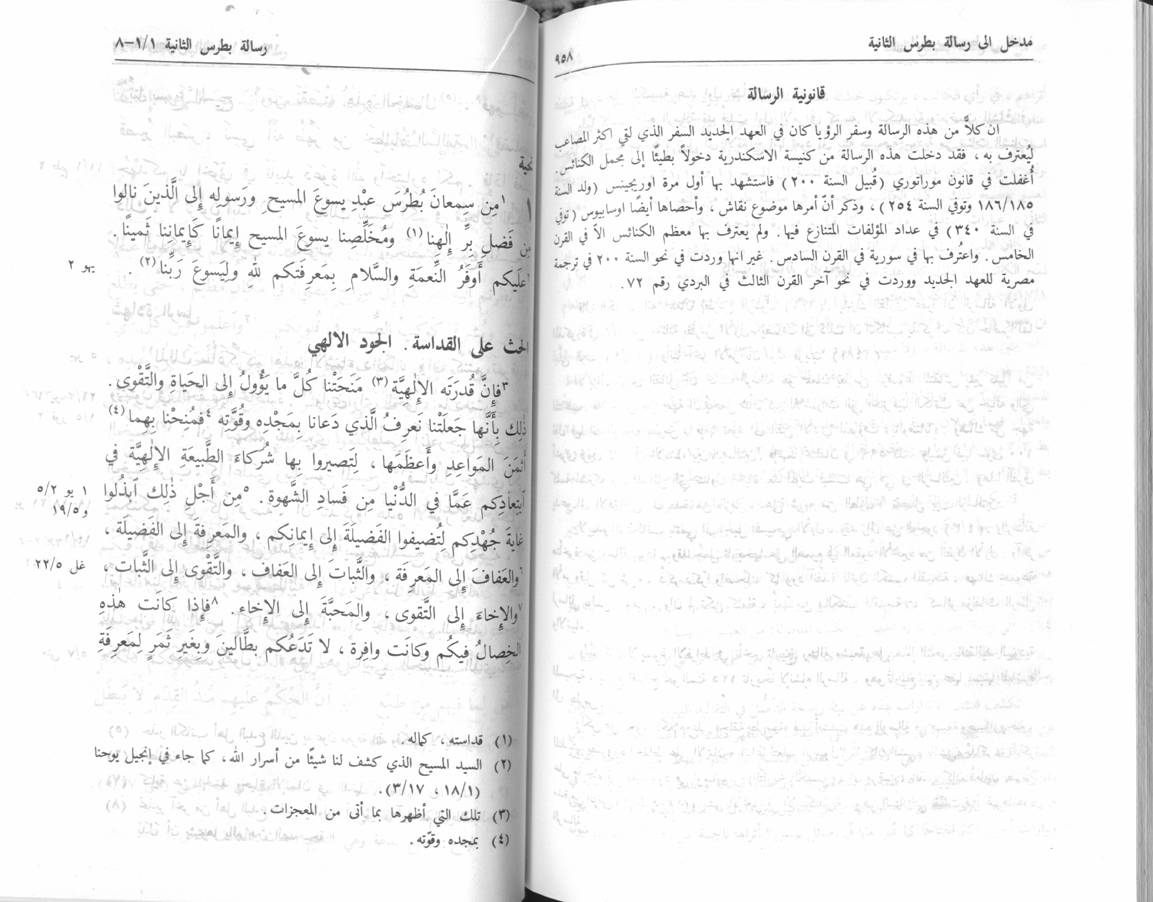 مدخل الى رسالة بطرس الثانية
٩٥٨
قانونية الرسالة
ان كلاًّ من هذه الرسالة وسفر الرؤيا كان في العهد الجديد السفر الذي لقي اكثر المصاعب
ليُعترف به ، فقد دخلت هذه الرسالة من كنيسة الاسكندرية دخولاً بطيئًا إلى مجمل الكنائس.
أُغفلت في قانون موراتوري (قُبيل السنة ٢٠٠) فاستشهد بها أول مرة اوريجينس (ولد السنة
١٨٦/١٨٥ وتوفي السنة ٢٥٤) ، وذكر أنّ أمرها موضوع نقاش ، وأحصاها أيضًا اوسابيوس (توفي
في السنة ٣٤٠) في عداد المؤلفات المتنازع فيها. ولم يعترف بها معظم الكنائس الاّ في القرن
الخامس. واعتُرف بها في سورية في القرن السادس. غير انها وردت في نحو السنة ٢٠٠ في ترجمة
مصرية للعهد الجديد ووردت في نحو آخر القرن الثالث في البردي رقم ٧٢.
رسالة بطرس الثانية ١/١-٨
تحية
١ ١مِن سِمعانَ بُطرُسَ عَبْدِ يسوعَ المسيحِ ورَسولِه إِلى الَّذينَ نالوا
مِن فَضلِ بِرِّ إِلٰهِنا(١) ومُخَلِّصِنا يسوعَ المسيح إِيمانًا كَإِيمانِنا ثَمينًا.
٢علَيكم أَوفَرُ النِّعمَةِ والسَّلامِ بِمَعرِفَتكم للهِ ولِيَسوعَ رَبِّنا(٢).
يهو ٢
الحث على القداسة. الجود الالهي
٣فإِنَّ قُدرَتَه الإِلٰهِيَّة(٣) مَنَحَتْنا كُلَّ ما يَؤُولُ إِلى الحَياةِ والتَّقْوى.
ذٰلِك بِأَنَّها جَعَلَتْنا نَعرِفُ الَّذي دَعانا بِمَجْدِه وقُوَّتِه ٤فمُنِحْنا بِهِما(٤)
أَثمَنَ المَواعِدِ وأَعظَمَها ، لِتَصيروا بِها شُرَكاءَ الطَّبيعَةِ الإِلٰهِيَّة في
١ يو ٥/٢
ابتِعادِكم عَمَّا في الدُّنْيا مِن فَسادِ الشَّهوَة. ٥مِن أَجْلِ ذٰلِك ابذُلوا
و١٩/٥
غايَةَ جُهْدِكم لِتُضيفوا الفَضيلَةَ إِلى إِيمانِكم ، والمَعرِفةَ إِلى الفَضيلَة ،
٦والعَفافَ إِلى المَعرِفة ، والثَّباتَ إِلى العَفاف، والتَّقْوى إِلى الثَّبات ،
غل ٢٢/٥
٧والإِخاءَ إِلى التَّقوى ، والمَحبَّةَ إِلى الإِخاء. ٨فإِذا كانَت هٰذِه
الخِصالُ فيكُم وكانَت وافِرة ، لا تَدَعُكم بطَّالينَ وبِغَيرِ ثَمَرٍ لِمَعرِفَةِ
(١) قداسته ، كماله.
(٢) السيد المسيح الذي كشف لنا شيئًا من أسرار الله، كما جاء في إنجيل يوحنا
(١٨/١ ، ٣/١٧).
(٣) تلك التي أظهرها بما أتى من المعجزات.
(٤) بمجده وقوّته.